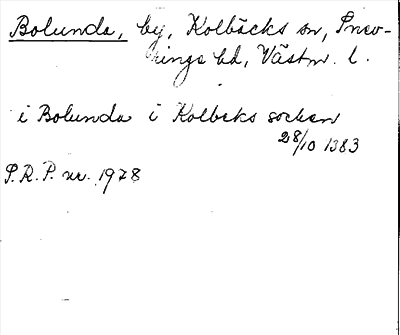 Bolunda, by, Kolbäcks sn, Snev-
ringe hd, Västm. l.
i Bolunda i Kolbeks socken
28/10 1383
P.R.P. nr. 1978